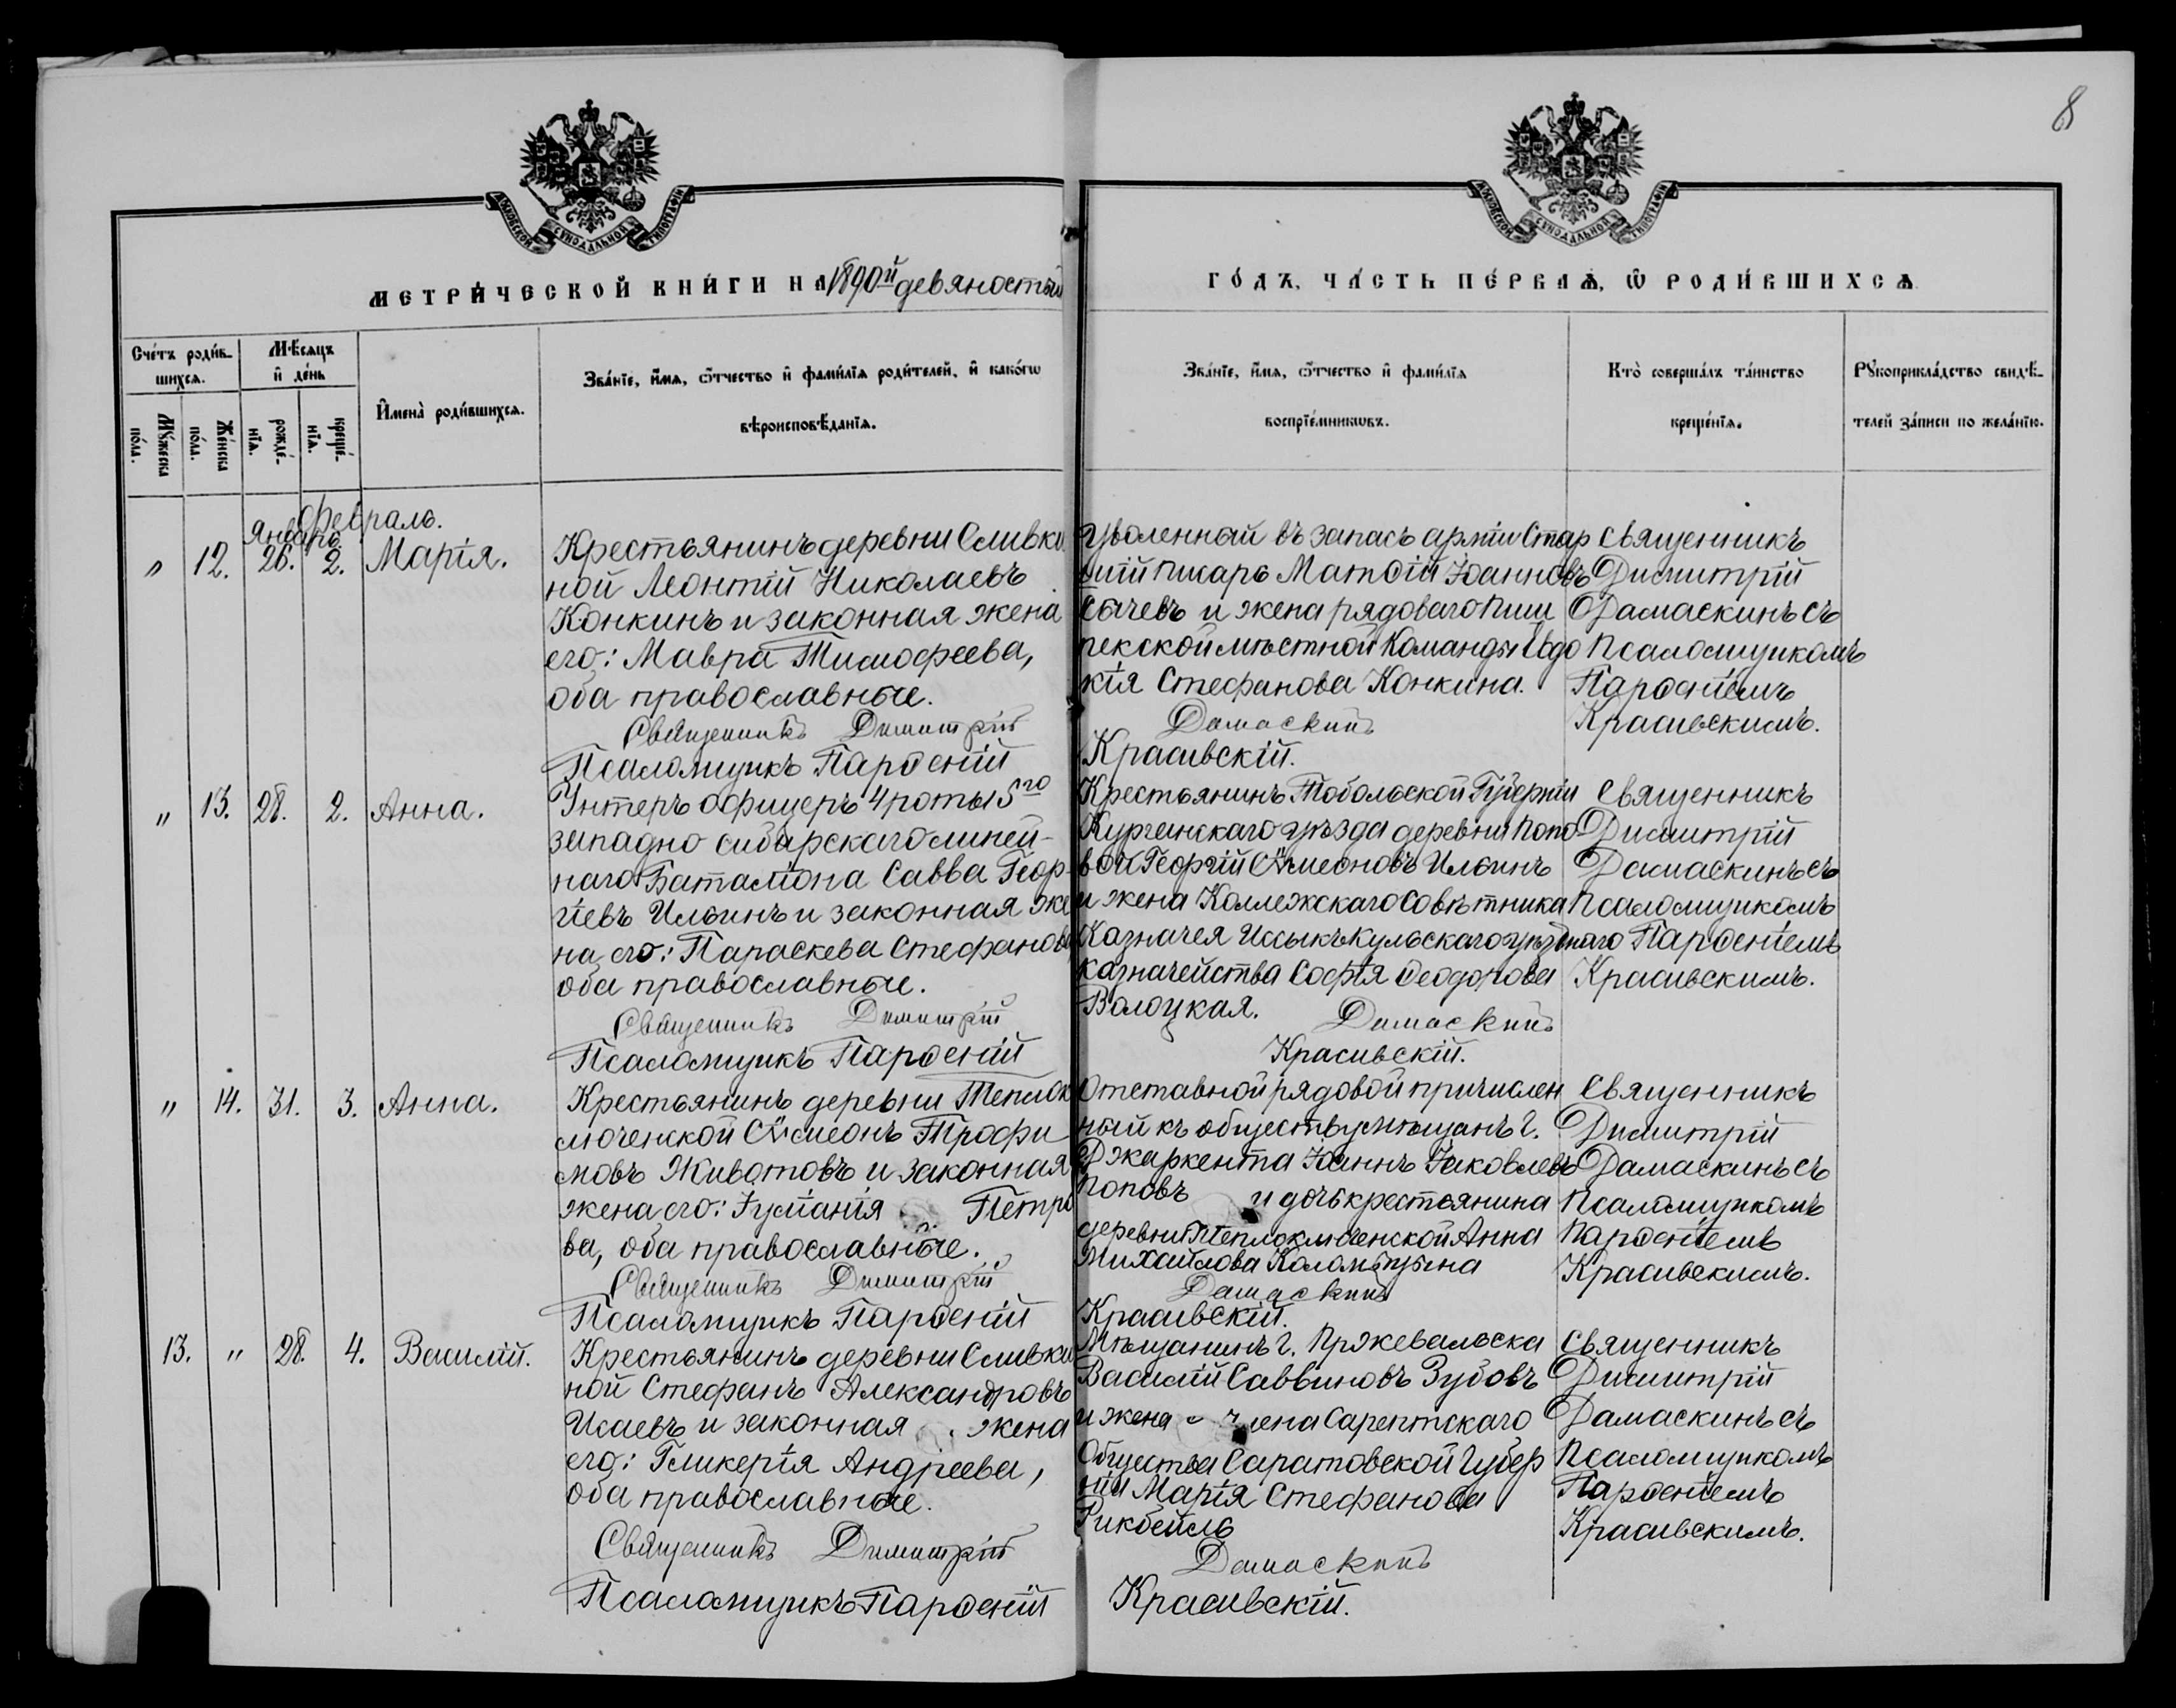 8
МОСКОВСКОЙ СѴНОДАЛЬНОЙ ТИПОГРАФІИ
МОСКОВСКОЙ СѴНОДАЛЬНОЙ ТИПОГРАФІИ
МЕТРИ́ЧЕСКОЙ КНИ́ГИ НА 1890й девяностый
ГО́ДЪ, ЧА́СТЬ ПЕ́РВАѦ, Ѿ РОДИ́ВШИХСѦ
Сче́тъ роди́в-
шихсѧ.
Мꙋ́жеска
по́ла.
Же́нска
по́ла.
Мѣ́сѧцъ
и҆ де́нь
рожде́-
нїѧ.
креще́-
нїѧ.
И҆мена̀ роди́вшихсѧ.
Зва́нїе, и҆́мѧ, ѻ҆́тчество и҆ фами́лїѧ роди́телей, и҆ како́гѡ
вѣроисповѣ́данїѧ.
Зва́нїе, и҆́мѧ, ѻ҆́тчество и҆ фами́лїѧ
воспрїе́мникѡвъ.
Кто̀ соверша́лъ та́инство
креще́нїѧ.
Рꙋкоприкла́дство свидѣ́-
телей за́писи по жела́нїю.
Январь. Февраль.
" 12. 26. 2. Марія.
Крестьянинъ деревни Сливки
ной Леонтій Николаевъ
Конкинъ и законная жена
его: Мавра Тимофеева,
оба православные.
Священникъ Димитрій
Псаломщикъ Парѳеній
Уволенный въ запасъ арміи Стар
шій писарь Матѳій Іоанновъ
Сычевъ и жена рядоваго Пиш
пекской мѣстной Команды Евдо
кія Стефанова Конкина.
Дамаскинъ
Красивскій.
Священникъ
Димитрій
Дамаскинъ съ
Псаломщикомъ
Парѳеніемъ
Красивскимъ.
" 13. 28. 2. Анна.
Унтеръ офицеръ 4 роты 5го
западно сибирскаго линей-
наго Баталіона Савва Геор-
гіевъ Ильинъ и законная же
на его: Параскева Стефанова,
оба православные.
Священникъ Димитрій
Псаломщикъ Парѳеній
Крестьянинъ Тобольской Губерніи
Курганскаго уѣзда деревни Попо
вой Георгій Сѵмеоновъ Ильинъ
и жена Коллежскаго Совѣтника
Казначея Иссыкъ Кульскаго уѣзднаго
казначейства Софія Ѳеодорова
Волоцкая. Дамаскинъ
Красивскій.
Священникъ
Димитрій
Дамаскинъ съ
Псаломщикомъ
Парѳеніемъ
Красивскимъ.
" 14. 31. 3. Анна.
Крестьянинъ деревни Теплок
люченской Сѵмеонъ Трофи
мовъ Животовъ и законная
жена его: Іуліанія Петро
ва, оба православные.
Священникъ Димитрій
Псаломщикъ Парѳеній
Отставной рядовой причислен
ный къ обществу мѣщанъ г.
Джаркента Іоаннъ Іаковлевъ
Поповъ и дочь крестьянина
деревни Теплоключенской Анна
Михайлова Коломыцына
Дамаскинъ
Красивскій.
Священникъ
Димитрій
Дамаскинъ съ
Псаломщикомъ
Парѳеніемъ
Красивскимъ.
13. " 28. 4. Василій.
Крестьянинъ деревни Сливки
ной Стефанъ Александровъ
Исаевъ и законная жена
его: Гликерія Андреева,
оба православные.
Священникъ Димитрій
Псаломщикъ Парѳеній
Мѣщанинъ г. Пржевальска
Василій Саввиновъ Зубовъ
и жена члена Сарептскаго
Общества Саратовской Губер
ніи Марія Стефанова
Рикбейль
Дамаскинъ
Красивскій.
Священникъ
Димитрій
Дамаскинъ съ
Псаломщикомъ
Парѳеніемъ
Красивскимъ.